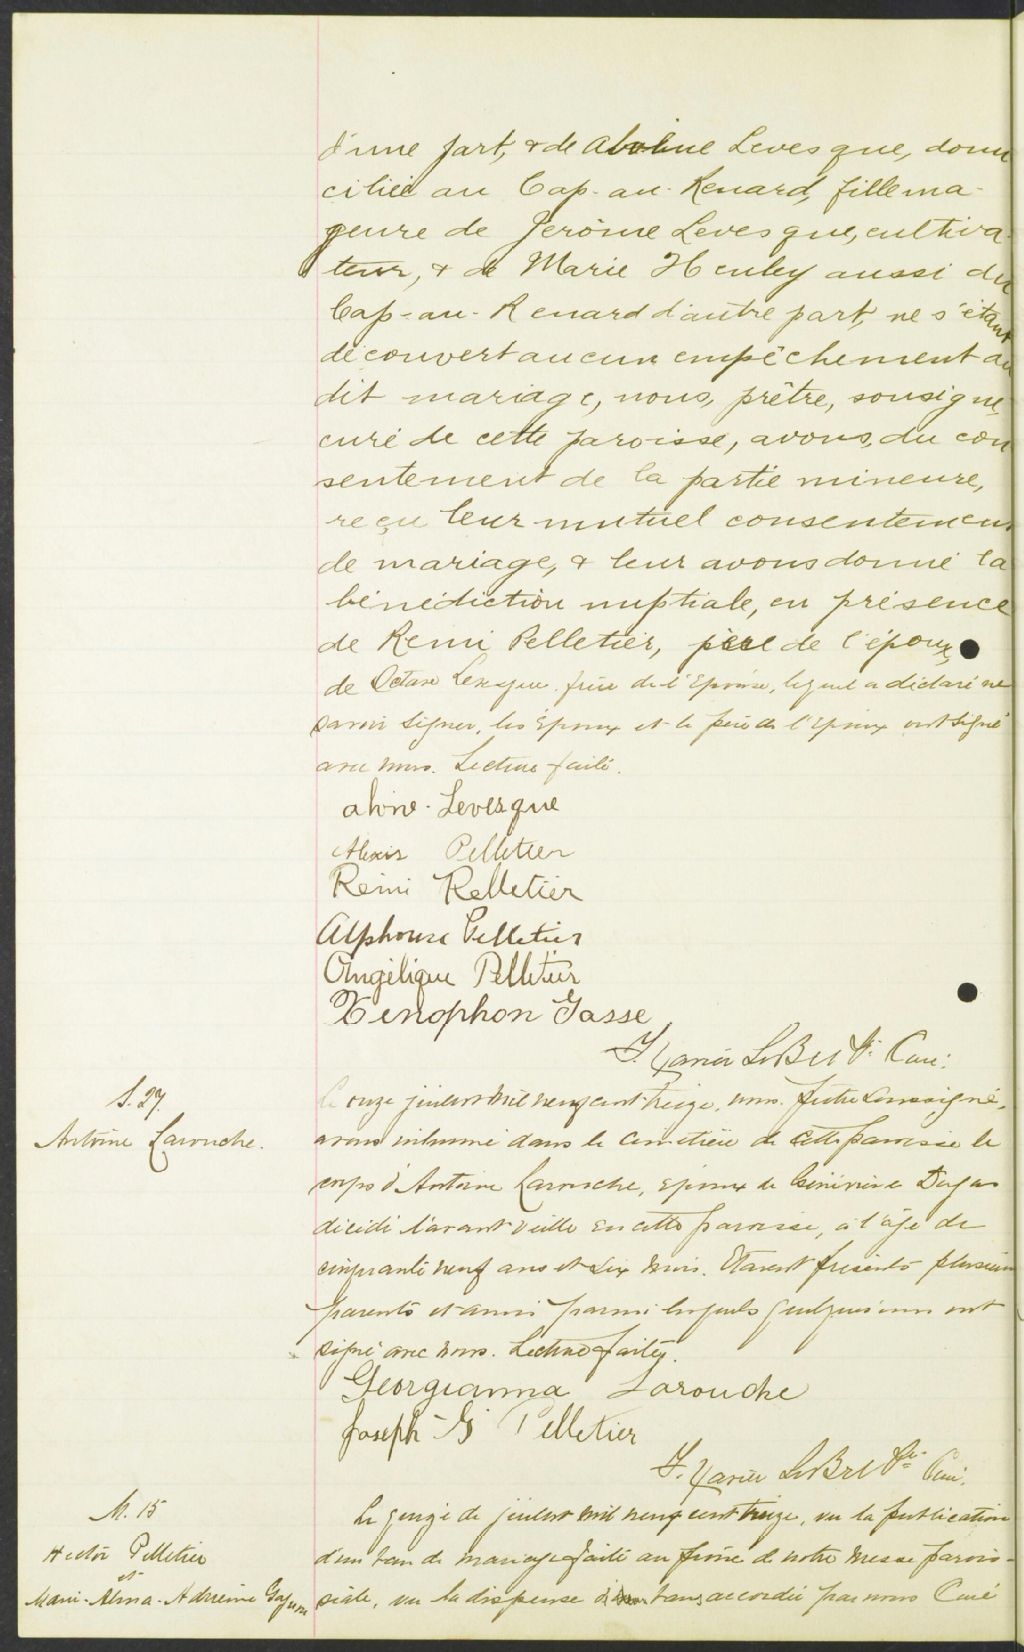 d'une part, & de Aboline Levesque, domi
ciliée au Cap-au-Renard, fille ma-
jeure de Jerôme Levesque, cultiva-
teur, & de Marie Henley aussi du
Cap-au-Renard d'autre part, ne s'étant
découvert aucun empêchement au
dit mariage, nous, prêtre, sousigné,
curé de cette paroisse, avons, du con
sentement de la partie mineure,
reçu leur mutuel consentement
de mariage, & leur avons donné la
bénédiction nuptiale, en présence
de Remi Pelletier, père de l'époux,
de Octave Levesque frère de l'Epouse, lequel a déclaré ne
savoir signer, les Epoux et le père de l'Epoux ont signé
avec nous. Lecture faite.
Levesque
Alexis Pelletier
Rémi Pelletier
Alphonse Pelletier
Angélique Pelletier
Xenophon Gasse
F. Xavier Ptre Curé.
S. 27.
Antoine Larouche.
Le onze juillet mil neuf cent treize, nous Prêtre soussigné,
avons inhumé dans le cimetière de cette paroisse le
corps d'Antoine Larouche, époux de Geneviève Dugas
décédé l'avant veille en cette paroisse, à l'âge de
cinquante neuf ans et six mois. Etaient présents plusieurs
parents et amis parmi lesquels quelques uns ont
signé avec nous. Lecture faite.
Georgianna Larouche
Joseph G Pelletier
F. Xavier Ptre Curé.
M. 15
Hector Pelletier
et
Marie-Alma-Adrienne
Le quinze de juillet mil neuf cent treize, vu la publication
d'un ban de mariage faite au prône de notre messe parois-
siale, vu la dispense bans accordée par nous Curé